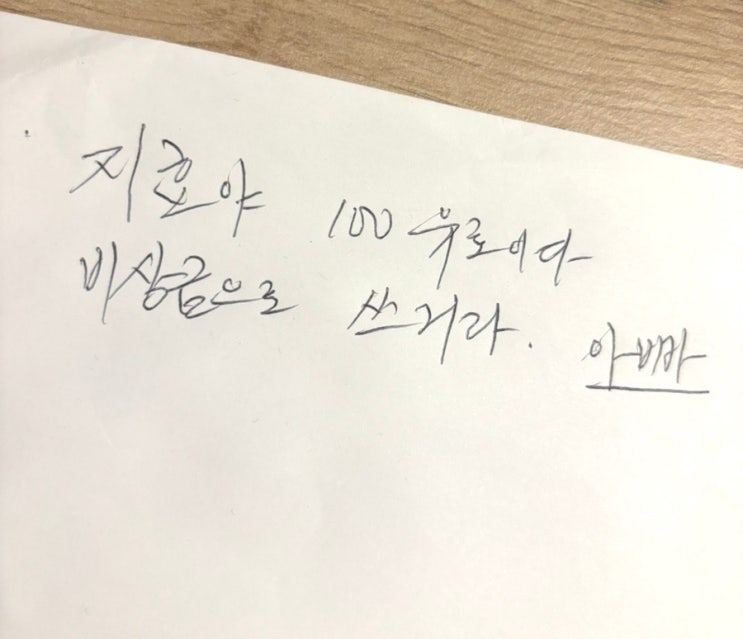 지호야 100 유로이다
비상금으로 쓰거라.
아빠